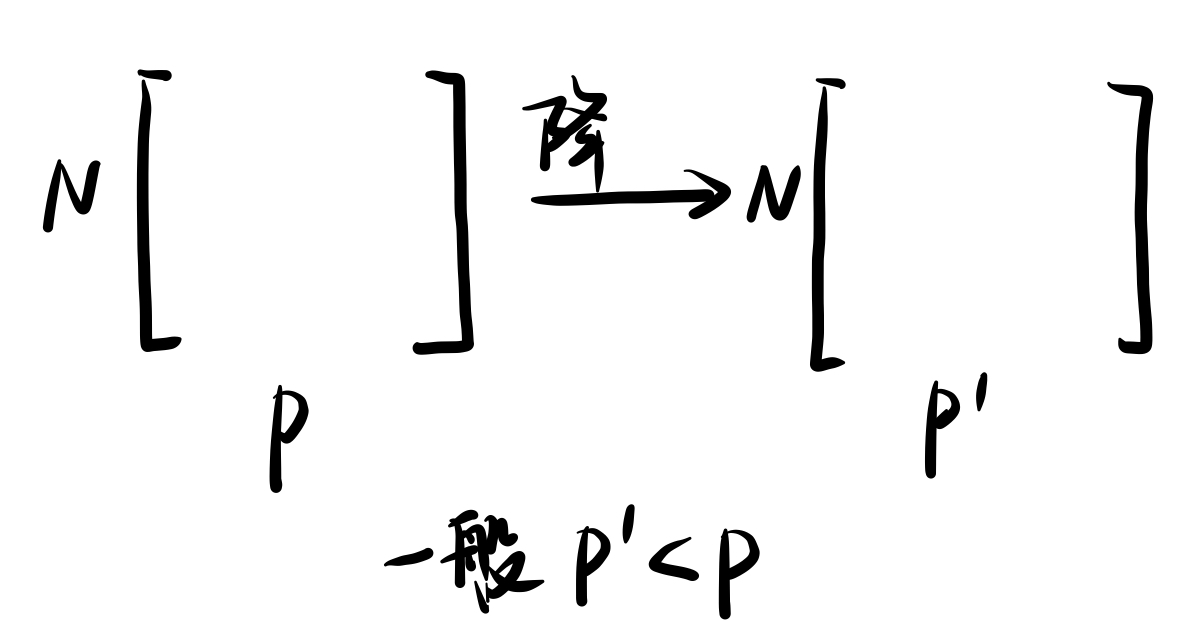 N [ ] 降 → N [ ]
p p'
一般 p' < p